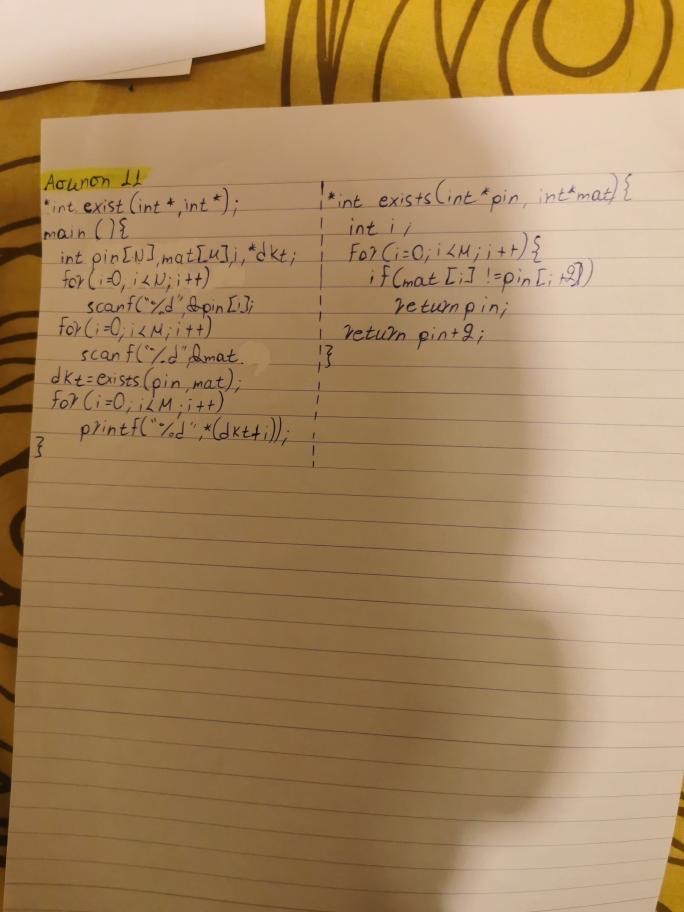 Άσκηση 11
*int exist (int*, int*);
main () {
int pin[N], mat[M], i, *dkt;
for (i=0, i<N; i++)
scanf("%d", &pin[i];
for (i=0; i<M; i++)
scanf("%d", &mat
dkt=exists(pin, mat);
for (i=0; i<M; i++)
printf("%d", *(dkt+i));
}
*int exists (int *pin, int*mat) {
int i;
for (i=0; i<M; i++) {
if (mat [i] != pin [i+2])
return pin;
return pin+2;
}